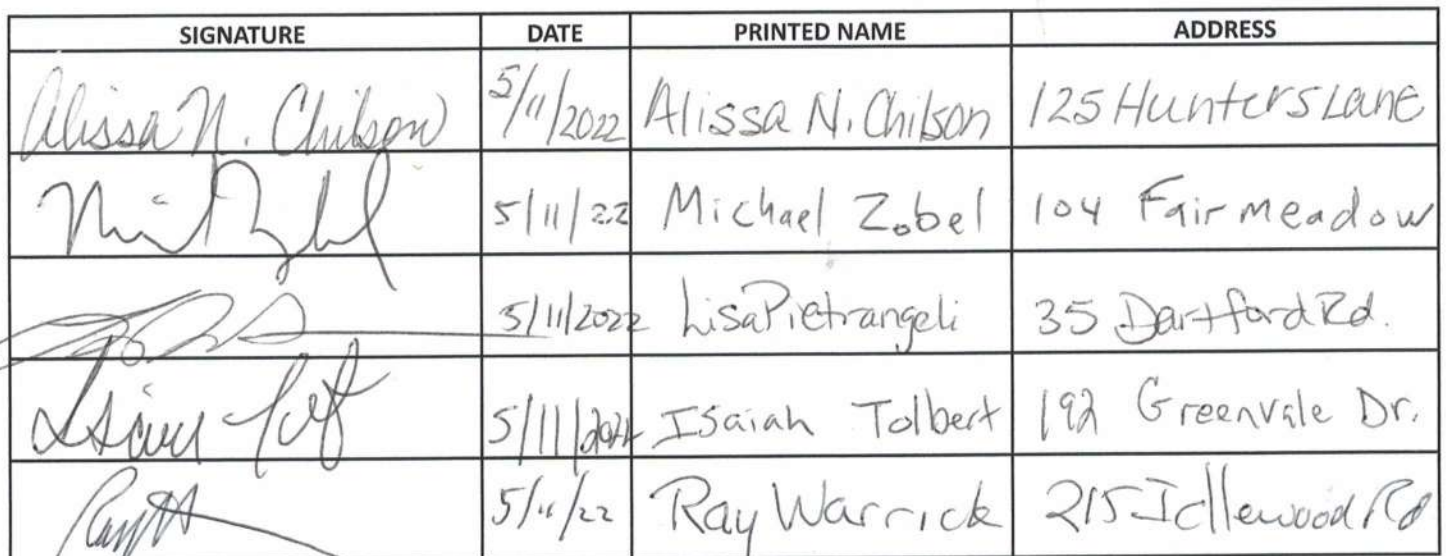 SIGNATURE DATE PRINTED NAME ADDRESS
Alissa N. Chilson 5/11/2022 Alissa N. Chilson 125 Hunters Lane
5/11/22 Michael Zobel 104 Fairmeadow
5/11/2022 Lisa Pietrangeli 35 Dartford Rd.
5/11/2022 Isaiah Tolbert 192 Greenvale Dr.
5/11/22 Ray Warrick 215 Idlewood Rd